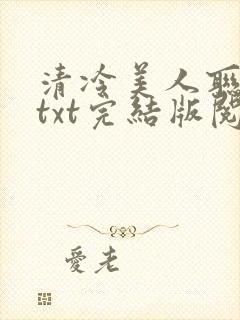 清冷美人
txt完結版閱
愛老